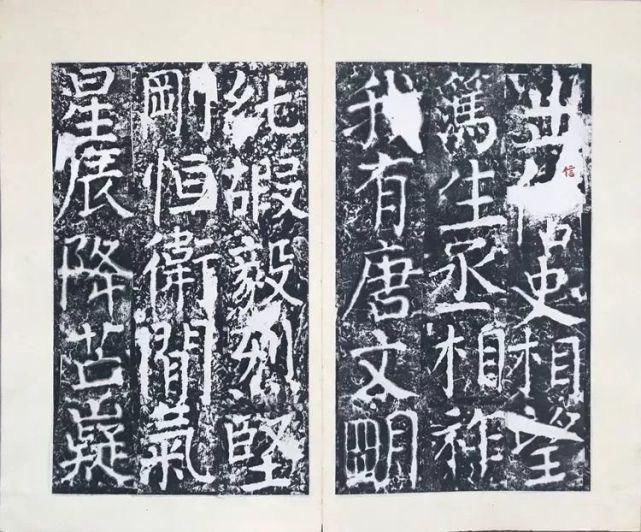 信史相望
篤生丞相祚
我有唐文明
純嘏毅烈堅
剛恒衛閒氣
星辰降芒嶷